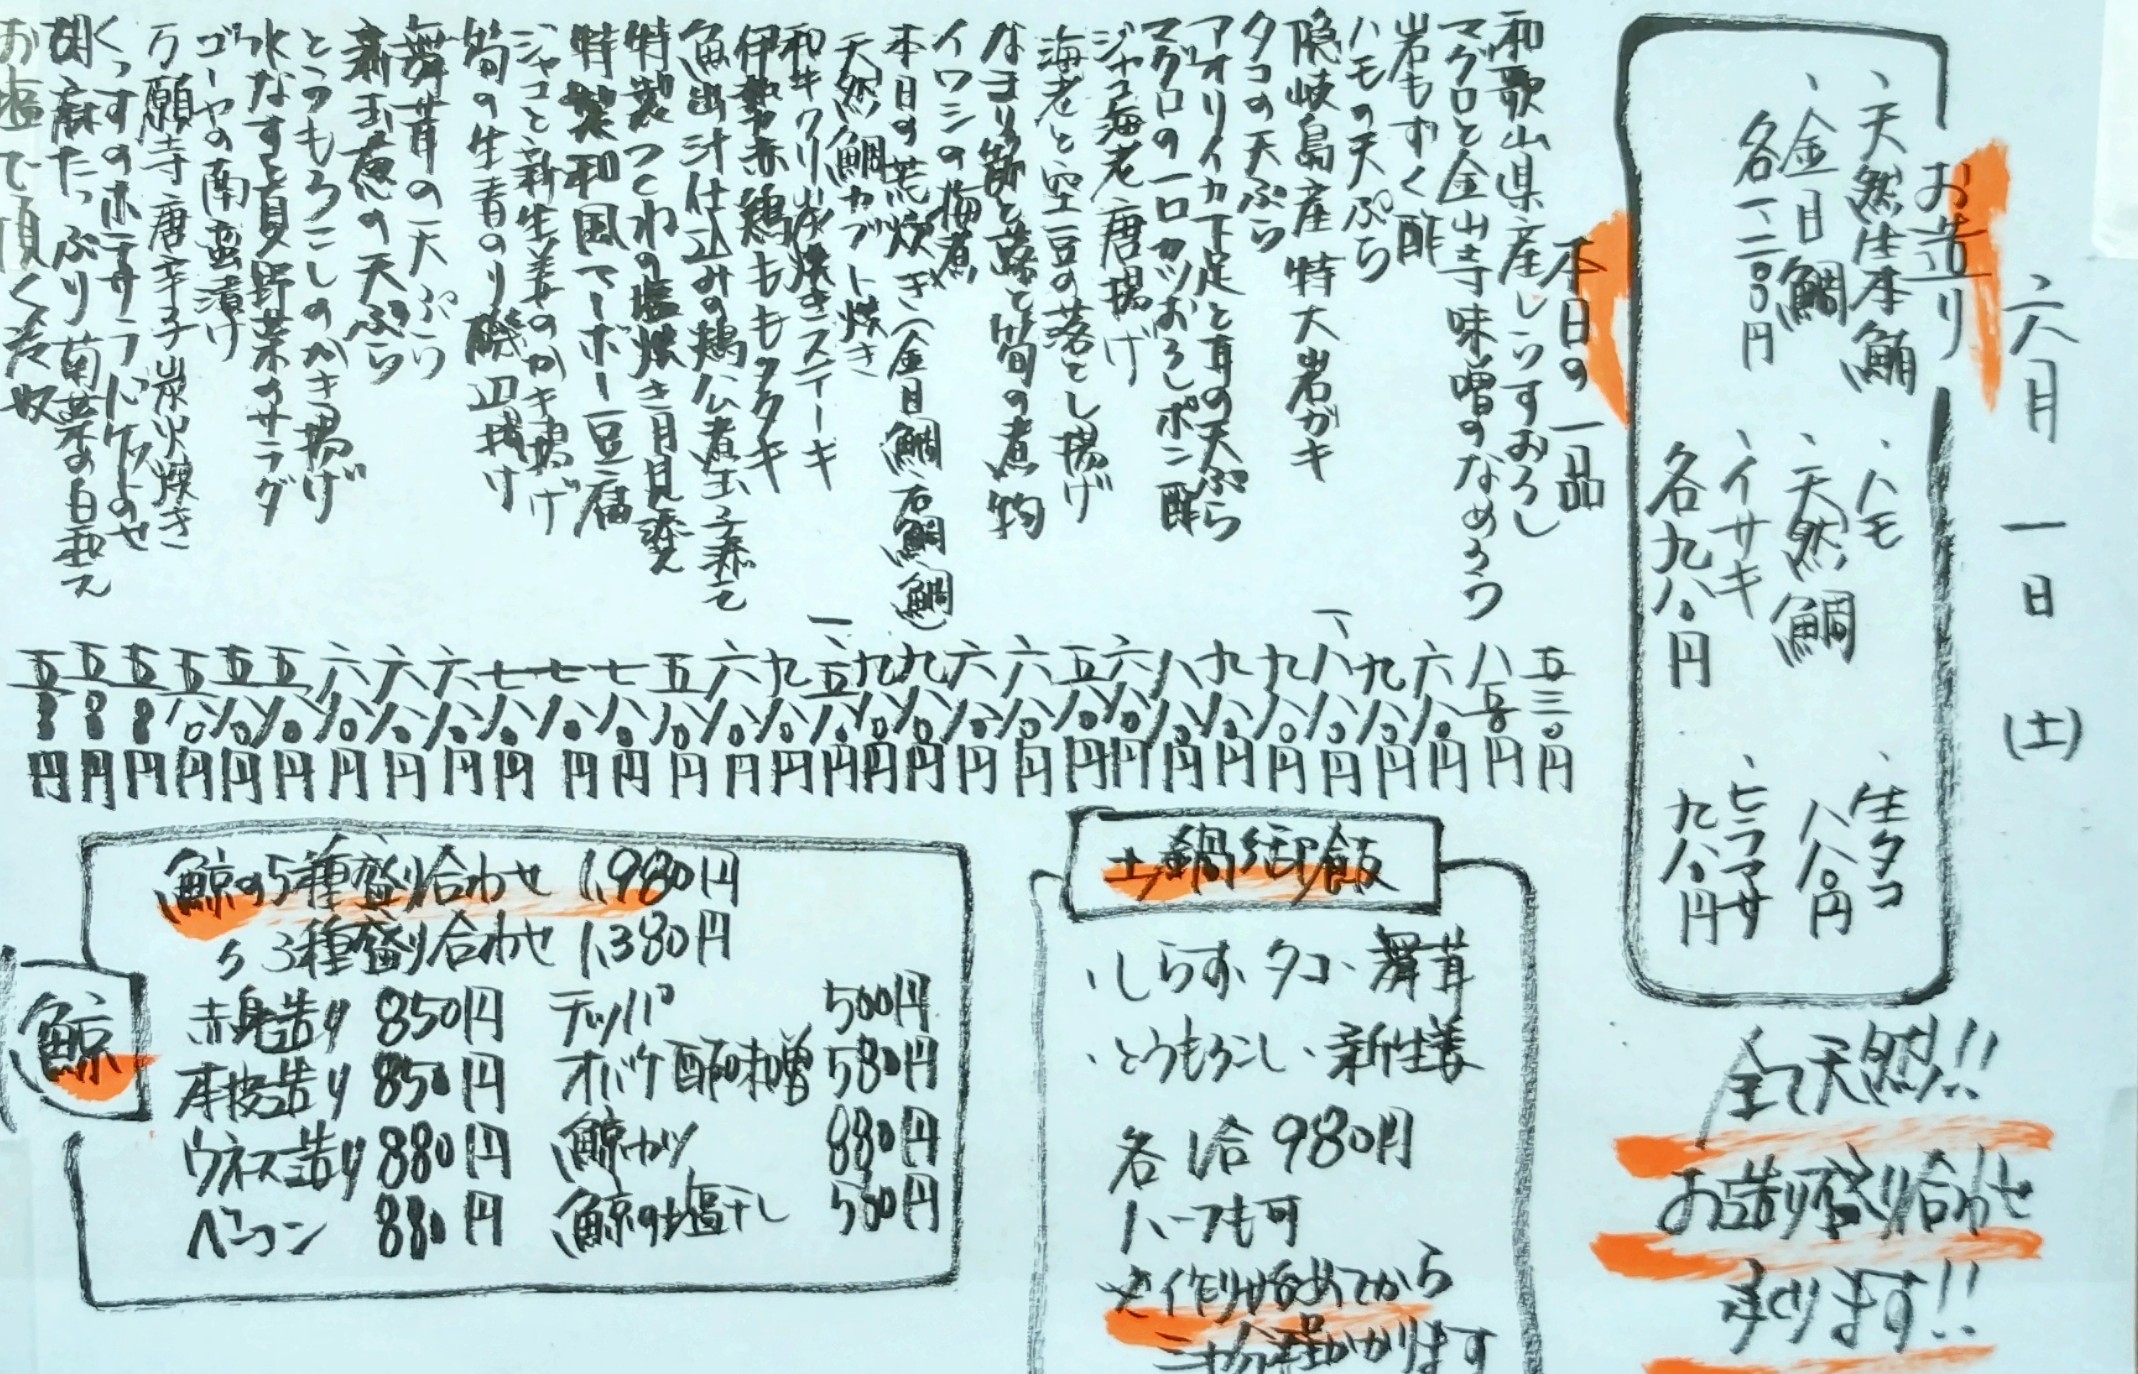 六月一日(土)
お造り
、天然生本鮪
、金目鯛
各一、二〇〇円
、ハモ
、天然鯛
、イサキ
各九八〇円
、生タコ
八八〇円
、ヒラマサ
九八〇円
全て天然!!
お造り盛り合わせ
承ります!!
本日の一品
和歌山県産しらすおろし 五三〇円
マグロと金山寺味噌のなめろう 八五〇円
岩もずく酢 六八〇円
ハモの天ぷら 九八〇円
隠岐島産 特大岩ガキ 一、八八〇円
タコの天ぷら 九八〇円
アオリイカ下足と耳の天ぷら 九八〇円
マグロの一口カツおろしポン酢 八八〇円
ジャコ海老唐揚げ 六八〇円
海老と空豆の落とし揚げ 五八〇円
なまり節と蕗と筍の煮物 六八〇円
イワシの梅煮 六八〇円
本日の荒炊き(金目鯛 石鯛 鯛) 九八〇円
天然鯛カブト焼き 九八〇円
和牛クリ炭焼きステーキ 一、五八〇円
伊勢赤鶏もものタタキ 九八〇円
魚出汁仕込みの鶏公煮玉子添えて 六八〇円
特製つくねの塩焼き月見添え 五八〇円
特製和風マーボー豆腐 七八〇円
ジャコと新生姜のかき揚げ 七八〇円
筍の生青のり磯辺揚げ 七八〇円
舞茸の天ぷら 六八〇円
新玉葱の天ぷら 六八〇円
とうもろこしのかき揚げ 六八〇円
水なすと夏野菜のサラダ 五八〇円
ゴーヤの南蛮漬け 五八〇円
万願寺唐辛子炭火焼き 五八〇円
くっすのポテサラバケットのせ 五〇〇円
胡麻たっぷり菊菜の白和え 五〇〇円
お塩で頂く冷奴 五〇〇円
土鍋御飯
・しらす、タコ、舞茸
・とうもろこし、新生姜
各1合 980円
ハーフも可
※作り始めてから
二十分程かかります
鯨
鯨の5種盛り合わせ 1,980円
〃 3種盛り合わせ 1,380円
赤身造り 850円
本皮造り 850円
ウネス造り 880円
ベーコン 880円
テッパ 500円
オバケ酢味噌 580円
鯨カツ 880円
鯨の塩干し 580円